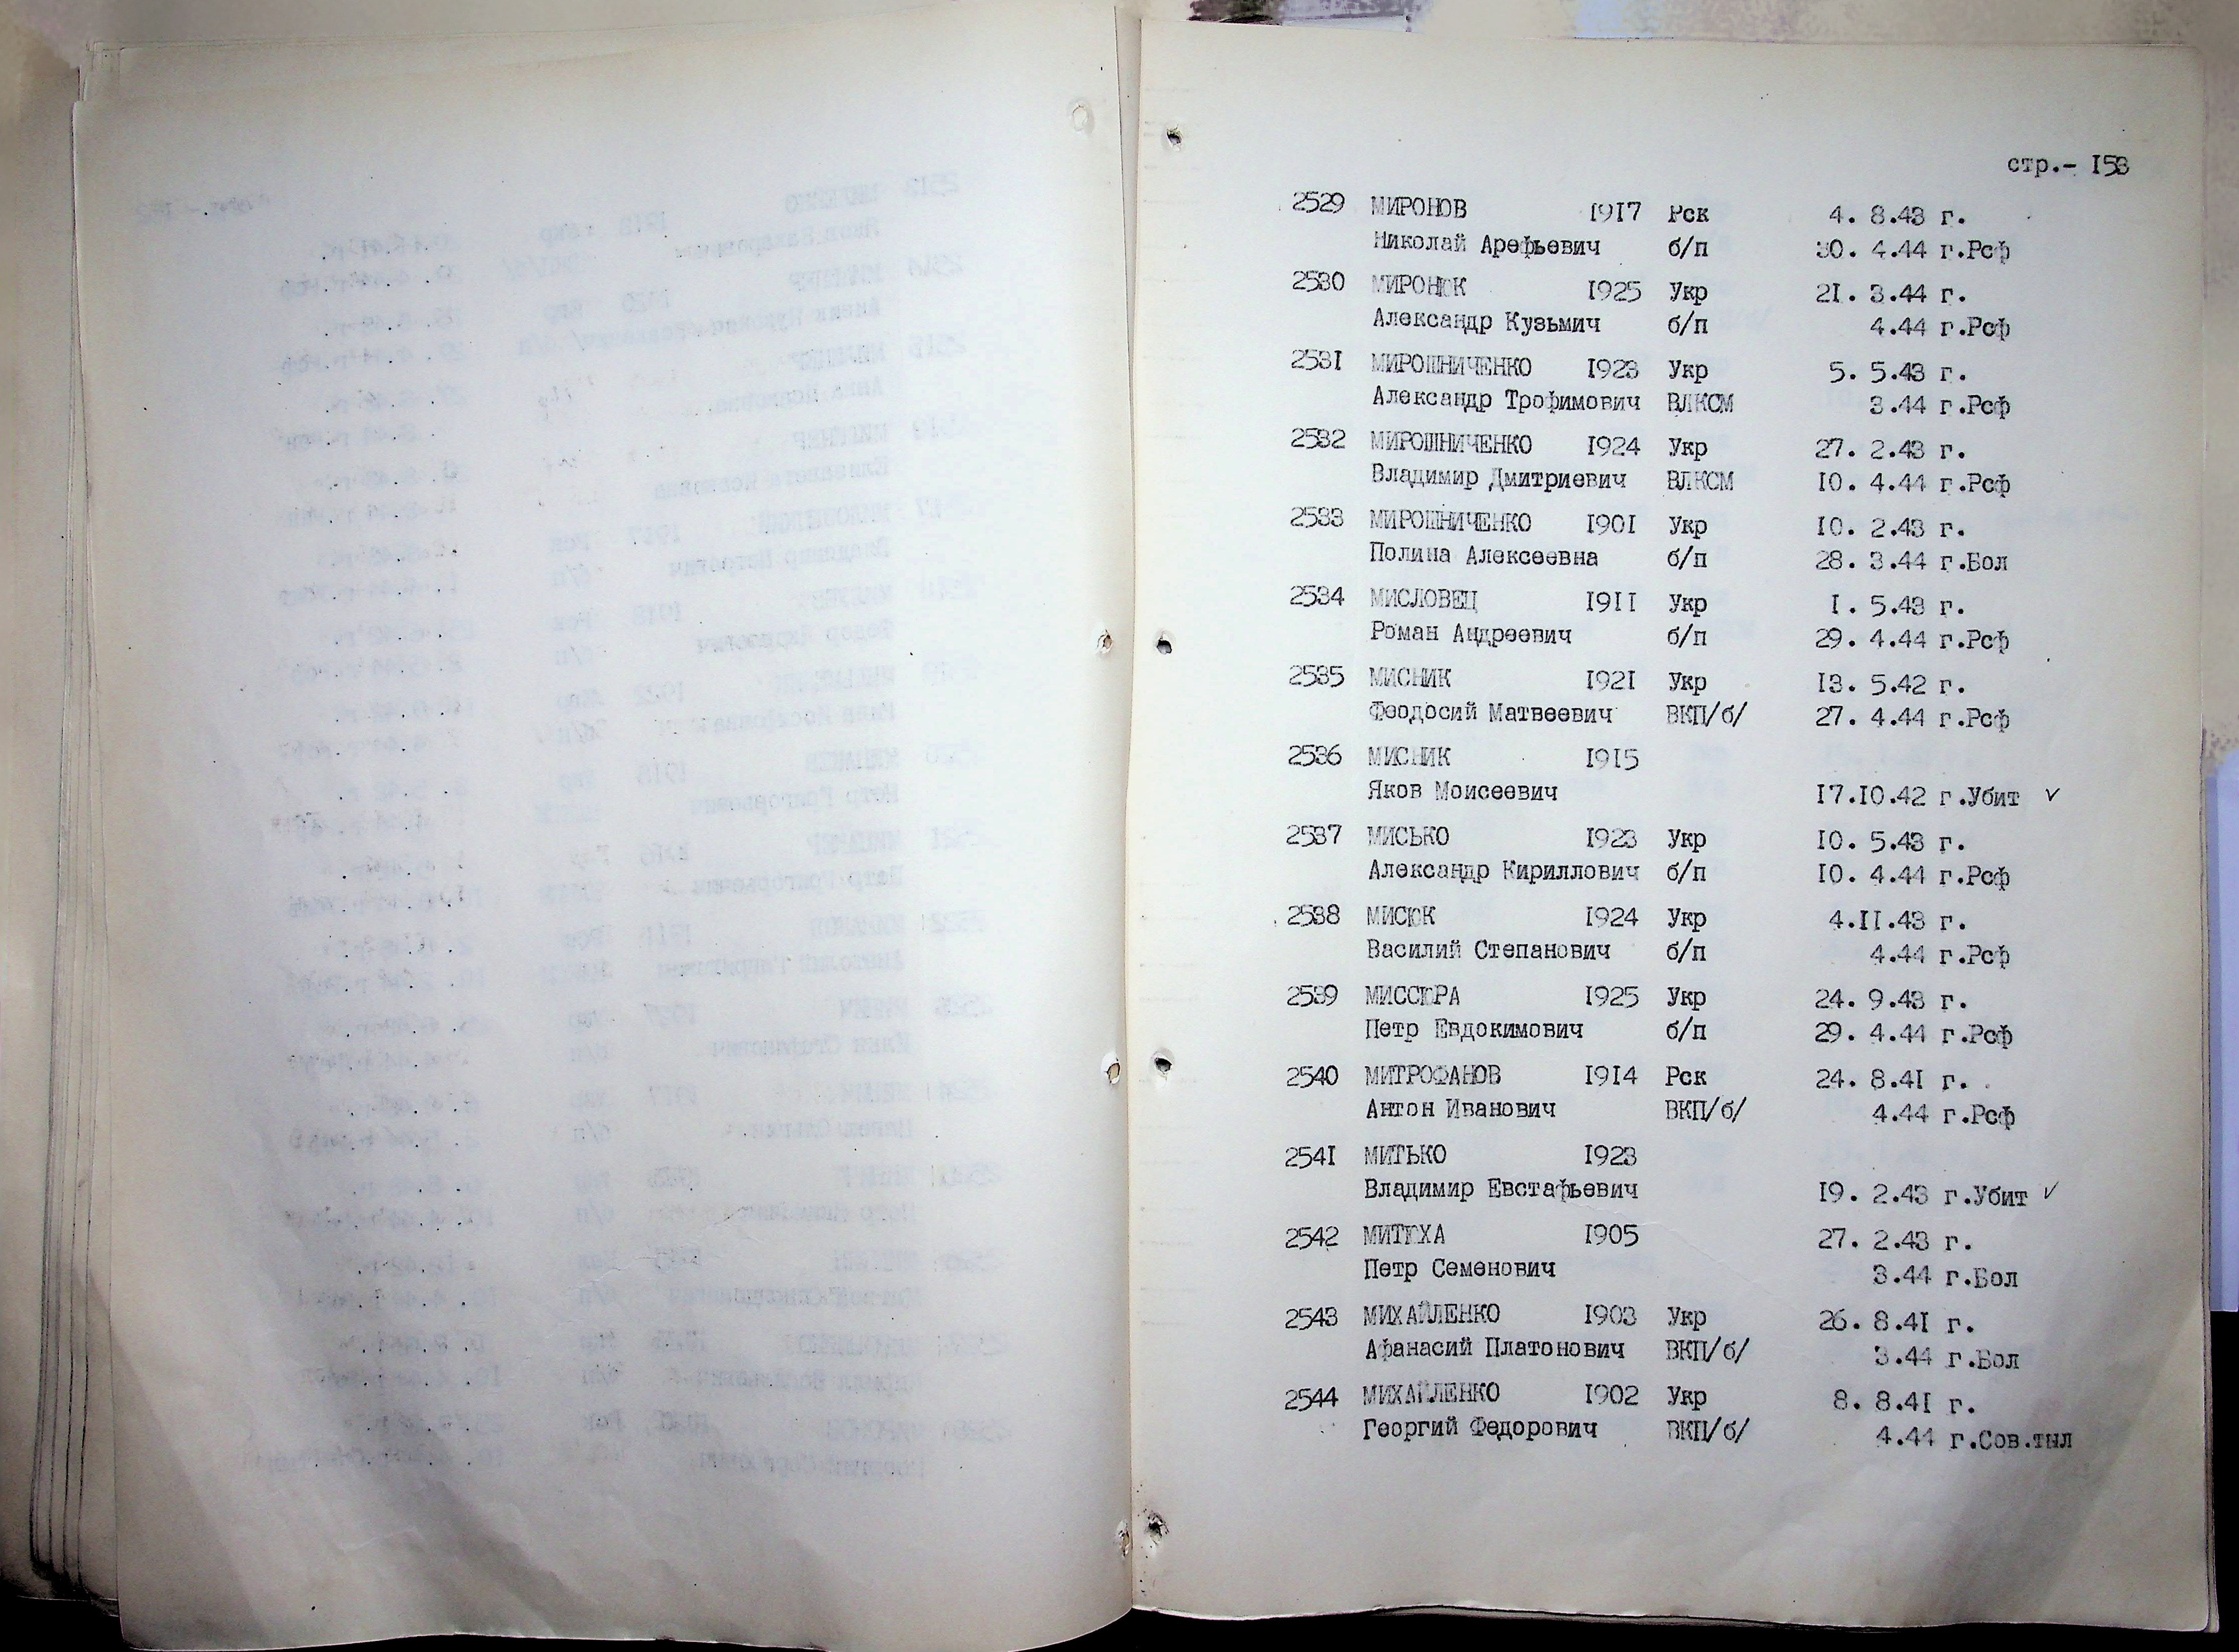 стр.- 153
2529 МИРОНОВ 1917 Рск 4. 8.43 г.
Николай Арефьевич б/п 30. 4.44 г.Рсф
2530 МИРОНЮК 1925 Укр 21. 3.44 г.
Александр Кузьмич б/п 4.44 г.Рсф
2531 МИРОШНИЧЕНКО 1923 Укр 5. 5.43 г.
Александр Трофимович ВЛКСМ 3.44 г.Рсф
2532 МИРОШНИЧЕНКО 1924 Укр 27. 2.43 г.
Владимир Дмитриевич ВЛКСМ 10. 4.44 г.Рсф
2533 МИРОШНИЧЕНКО 1901 Укр 10. 2.43 г.
Полина Алексеевна б/п 28. 3.44 г.Бол
2534 МИСЛОВЕЦ 1911 Укр 1. 5.43 г.
Роман Андреевич б/п 29. 4.44 г.Рсф
2535 МИСНИК 1921 Укр 13. 5.42 г.
Феодосий Матвеевич ВКП/б/ 27. 4.44 г.Рсф
2536 МИСНИК 1915
Яков Моисеевич 17.10.42 г.Убит ✓
2537 МИСЬКО 1923 Укр 10. 5.43 г.
Александр Кириллович б/п 10. 4.44 г.Рсф
2538 МИСЮК 1924 Укр 4.11.43 г.
Василий Степанович б/п 4.44 г.Рсф
2539 МИССЮРА 1925 Укр 24. 9.43 г.
Петр Евдокимович б/п 29. 4.44 г.Рсф
2540 МИТРОФАНОВ 1914 Рск 24. 8.41 г.
Антон Иванович ВКП/б/ 4.44 г.Рсф
2541 МИТЬКО 1923
Владимир Евстафьевич 19. 2.43 г.Убит ✓
2542 МИТЮХА 1905 27. 2.43 г.
Петр Семенович 3.44 г.Бол
2543 МИХАЙЛЕНКО 1903 Укр 26. 8.41 г.
Афанасий Платонович ВКП/б/ 3.44 г.Бол
2544 МИХАЙЛЕНКО 1902 Укр 8. 8.41 г.
Георгий Федорович ВКП/б/ 4.44 г.Сов.тыл